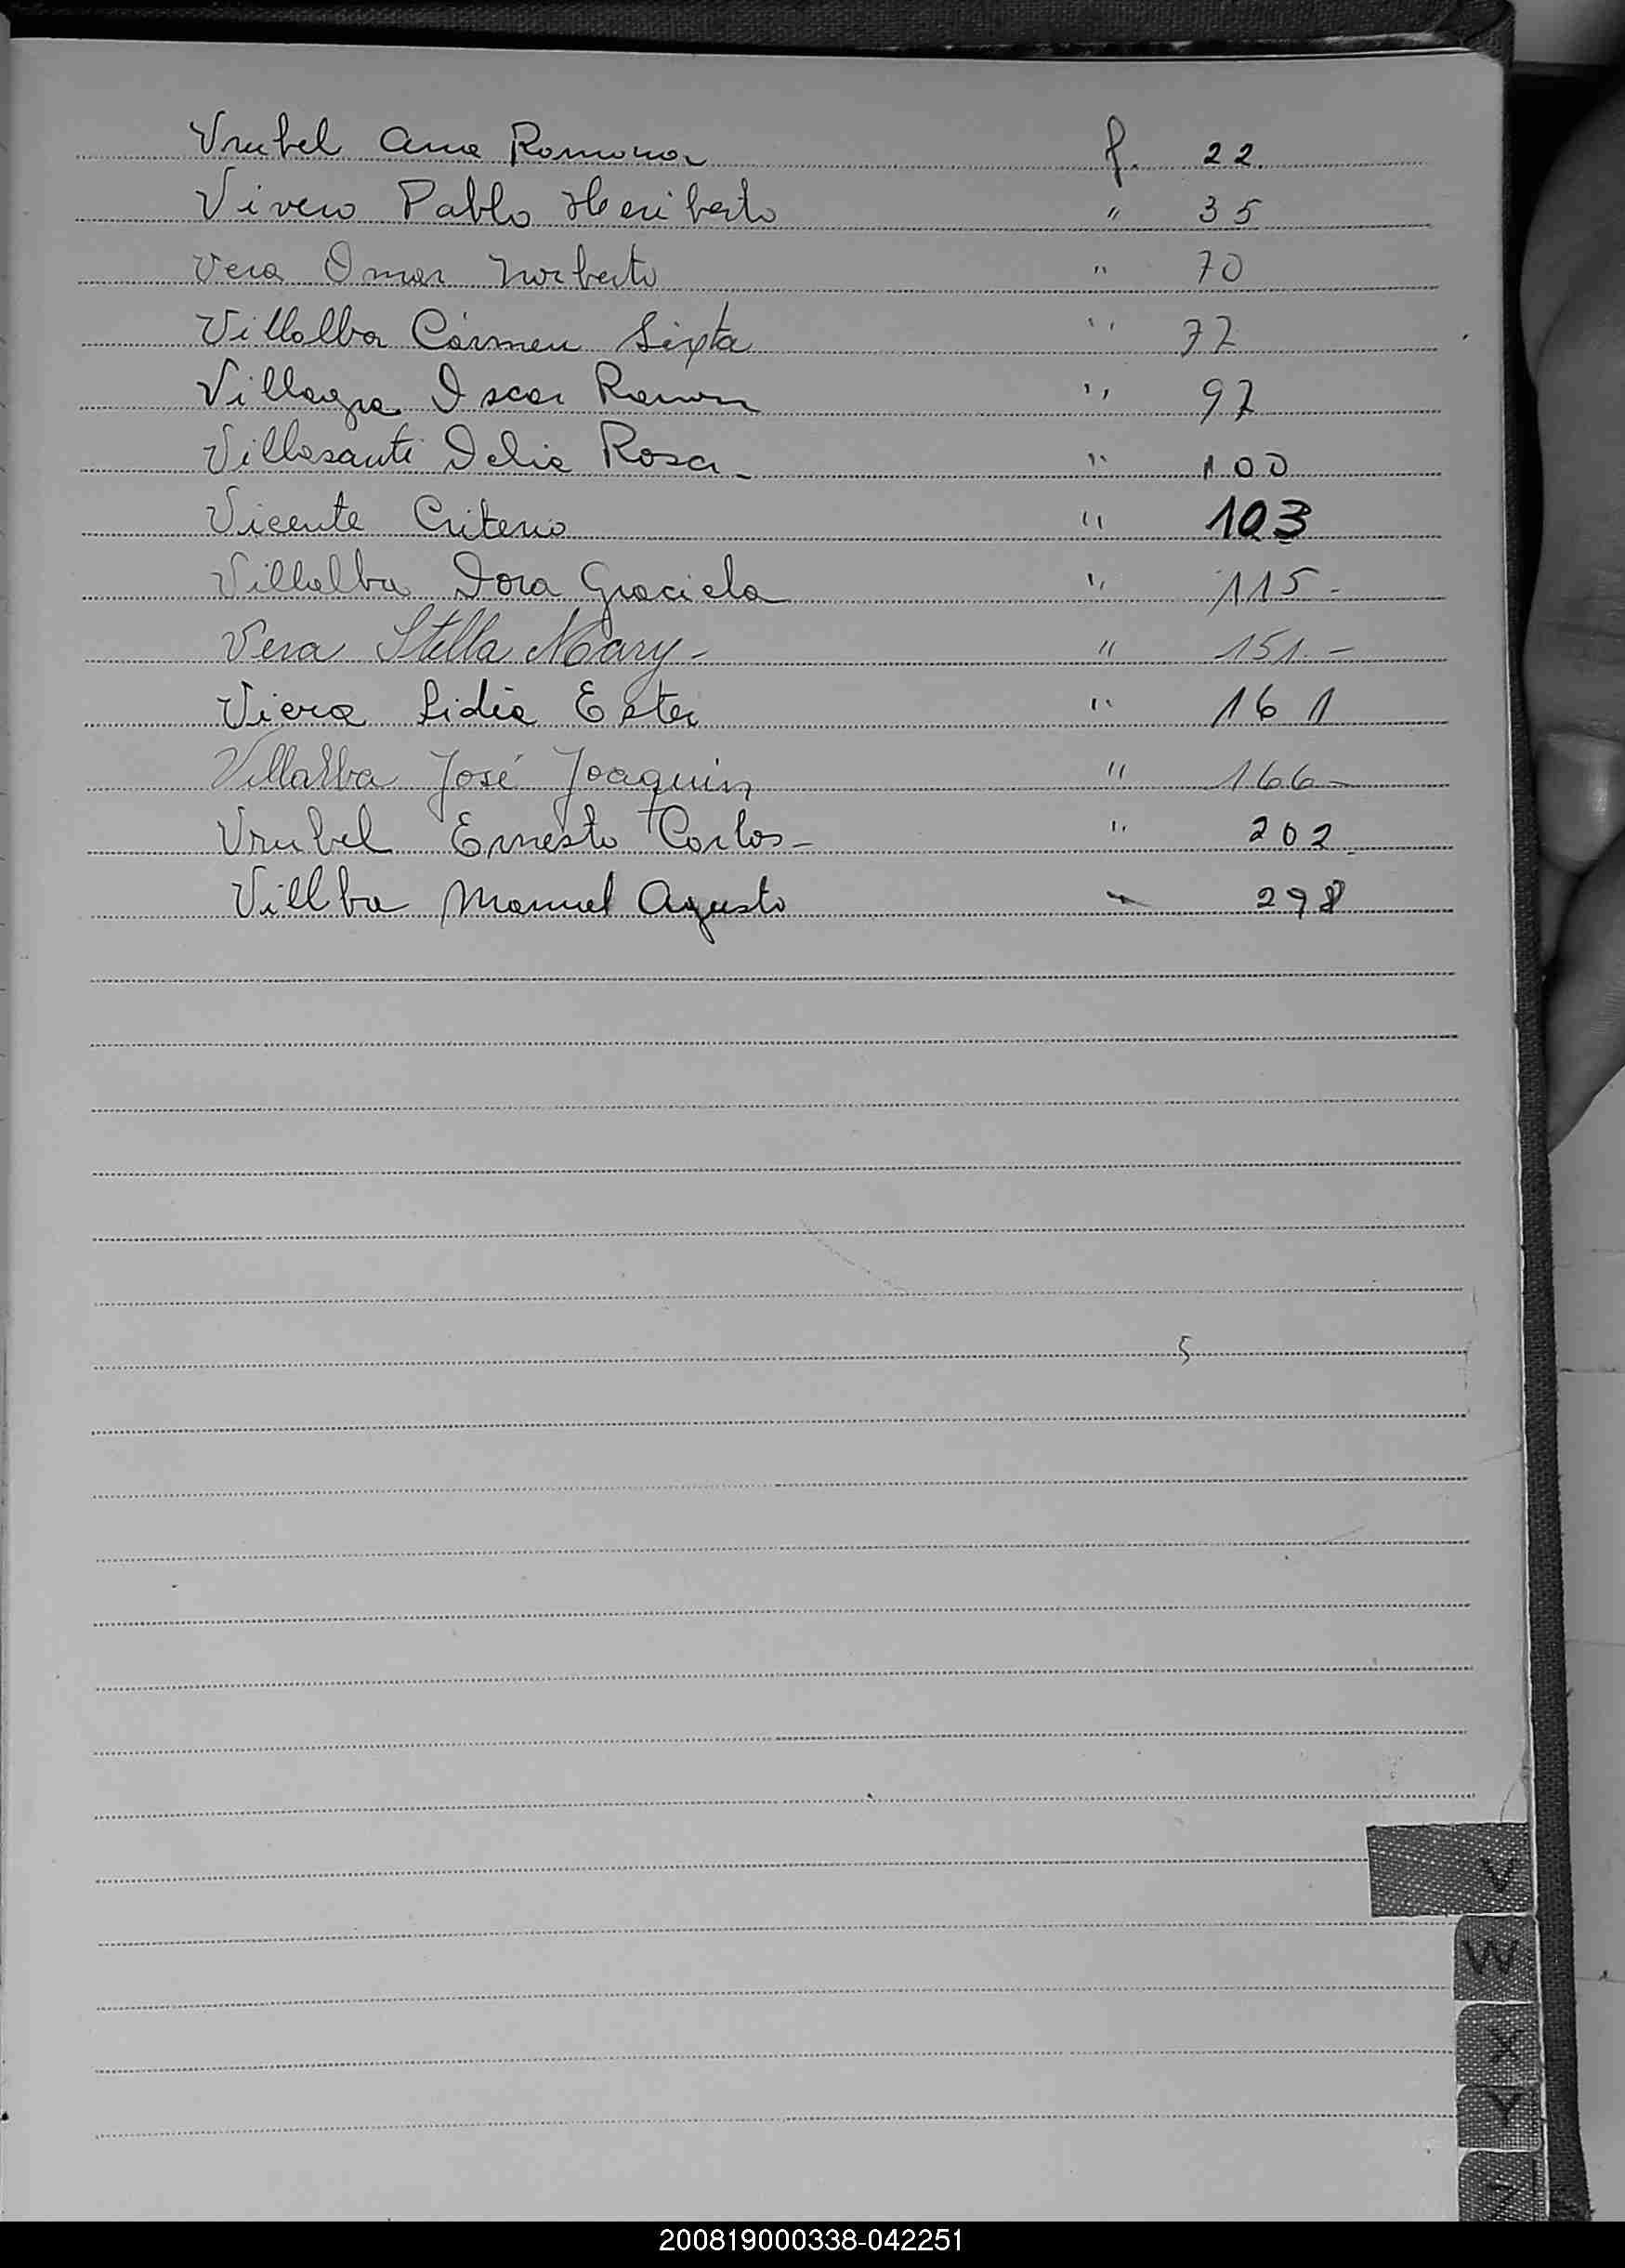 Vrubel Ana Ramona f. 22
Vivero Pablo Heriberto " 35
Vera Omar Norberto " 70
Villalba Cármen Sixta " 77
Villagra Oscar Ramon " 97
Villasanti Delia Rosa - " 100
Vicente Criterio " 103
Villalba Dora Graciela " 115 -
Vera Stella Mary - " 151. -
Viera Lidia Ester " 161
Villalba José Joaquin " 166 -
Vrubel Ernesto Carlos - " 202.
Villba Manuel Agusto " 298
5
V
W
X
Y
Z
200819000338-042251